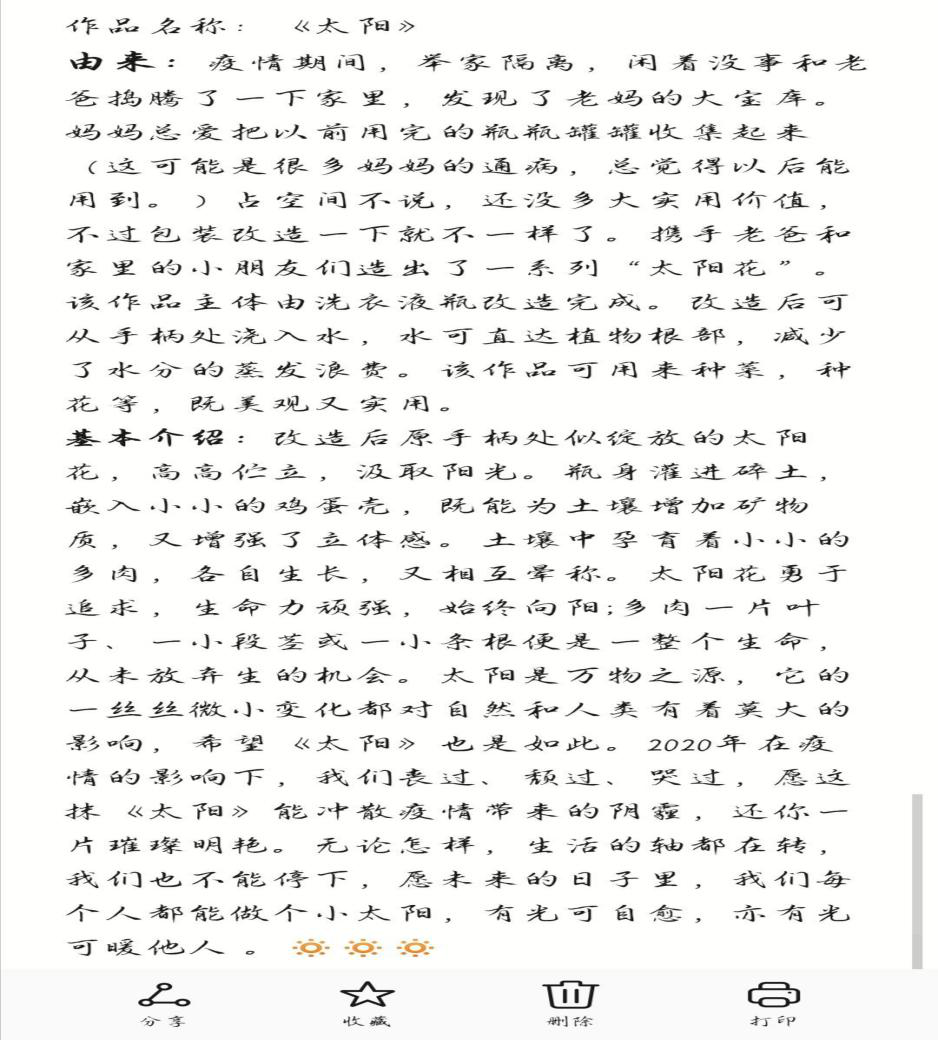 作品名称： 《太阳》
由来：疫情期间，举家隔离，闲着没事和老
爸捣腾了一下家里，发现了老妈的大宝库。
妈妈总爱把以前用完的瓶瓶罐罐收集起来
（这可能是很多妈妈的通病，总觉得以后能
用到。）占空间不说，还没多大实用价值，
不过包装改造一下就不一样了。携手老爸和
家里的小朋友们造出了一系列“太阳花”。
该作品主体由洗衣液瓶改造完成。改造后可
从手柄处浇入水，水可直达植物根部，减少
了水分的蒸发浪费。该作品可用来种菜，种
花等，既美观又实用。
基本介绍：改造后原手柄处似绽放的太阳
花，高高伫立，汲取阳光。瓶身灌进碎土，
嵌入小小的鸡蛋壳，既能为土壤增加矿物
质，又增强了立体感。土壤中孕育着小小的
多肉，各自生长，又相互晕称。太阳花勇于
追求，生命力顽强，始终向阳;多肉一片叶
子、一小段茎或一小条根便是一整个生命，
从未放弃生的机会。太阳是万物之源，它的
一丝丝微小变化都对自然和人类有着莫大的
影响，希望《太阳》也是如此。2020年在疫
情的影响下，我们丧过、颓过、哭过，愿这
抹《太阳》能冲散疫情带来的阴霾，还你一
片璀璨明艳。无论怎样，生活的轴都在转，
我们也不能停下，愿未来的日子里，我们每
个人都能做个小太阳，有光可自愈，亦有光
可暖他人。🔅🔅🔅
分享 收藏 删除 打印